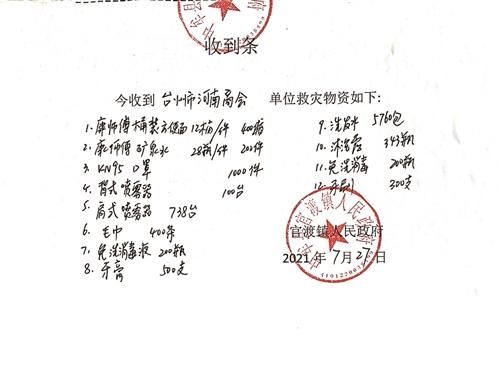 收到条
今收到 台州市河南商会 单位救灾物资如下:
1. 康师傅桶装方便面 12桶/件 400箱
2. 康师傅矿泉水 28瓶/件 200件
3. KN95口罩 1000件
4. 背式喷雾器 100台
5. 肩式喷雾器 738台
6. 毛巾 400条
7. 免洗消毒液 200瓶
8. 牙膏 500支
9. 洗发水 5760包
10. 沐浴露 343瓶
11. 免洗消毒 200瓶
12. 牙刷 300支
官渡镇人民政府
2021年7月27日
中牟县官渡镇人民政府